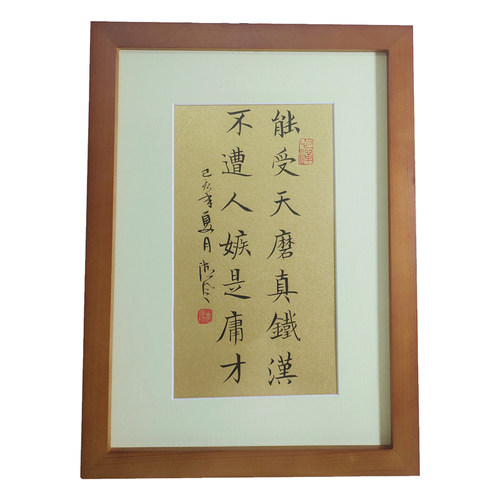 能受天磨真鐵漢
不遭人嫉是庸才
己亥年夏月